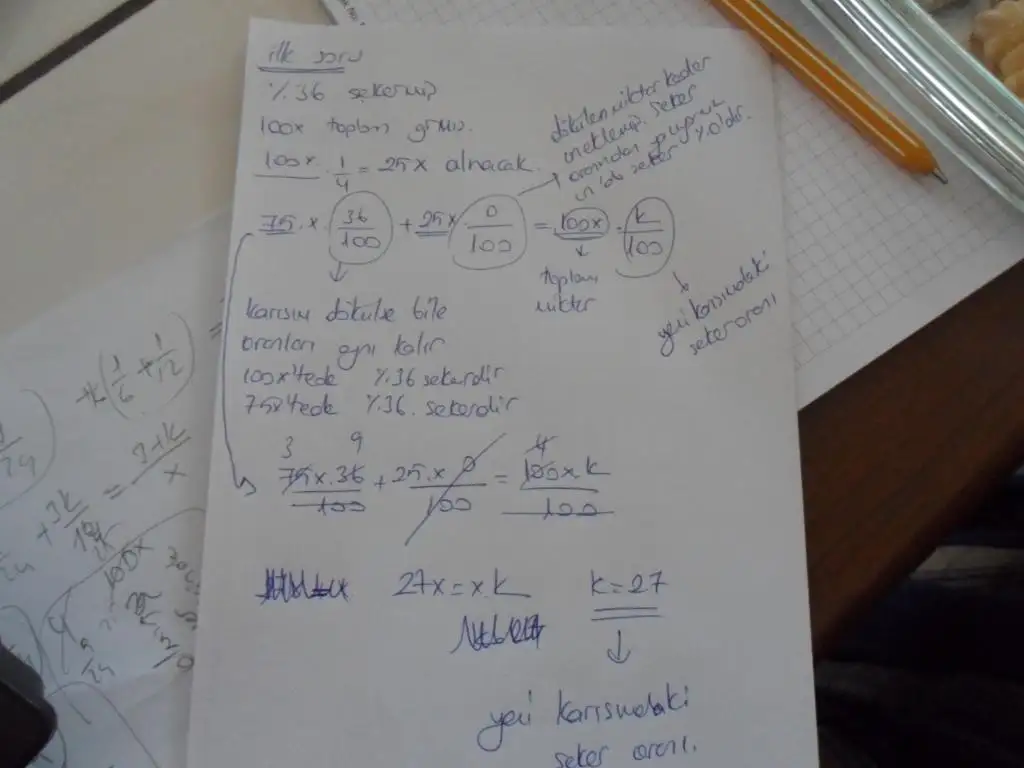 ilk soru
%36 şekermiş
100x toplam olmuş.
100x · 1/4 = 25x alınacak.
dökülen miktar kadar
eklemiş. şeker
oranından
un'da şeker %0'dır.
75·x · 36/100 + 25x · 0/100 = 100x · k/100
toplam
miktar
yeni karışımdaki
şeker oranı
karışım dökülse bile
oranları aynı kalır
100x'tede %36 şekerdir
75x'tede %36 şekerdir
3 9 4
75x.36/100 + 25.x.0/100 = 100xk/100
27x = xk k = 27
yeni karışımdaki
şeker oranı.
-k(1/6 + 1/12) =
+ 3k/ = 3+k/x
100x